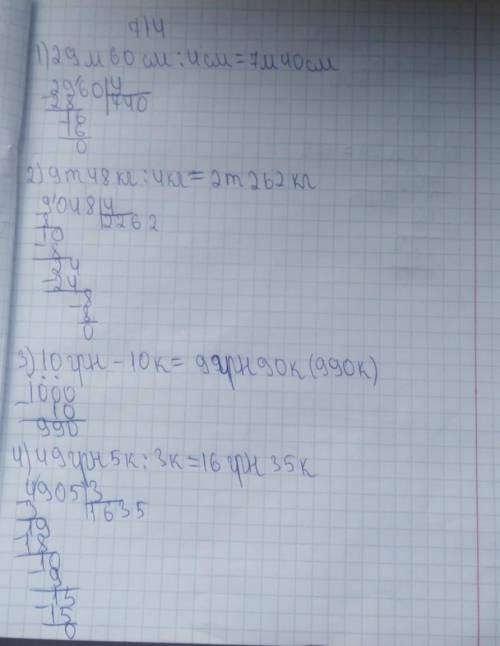 7/4
1) 29 м 60 см : 4 см = 7 м 40 см
2960 4
28 740
16
16
0
2) 9 т 48 кг : 4 кг = 2 т 262 кг
9048 4
8 2262
10
8
24
24
8
8
0
3) 10 грн - 10 к = 9 грн 90 к (990 к)
1000
10
990
4) 49 грн 5 к : 3 к = 16 грн 35 к
4905 3
3 1635
19
18
10
9
15
15
0